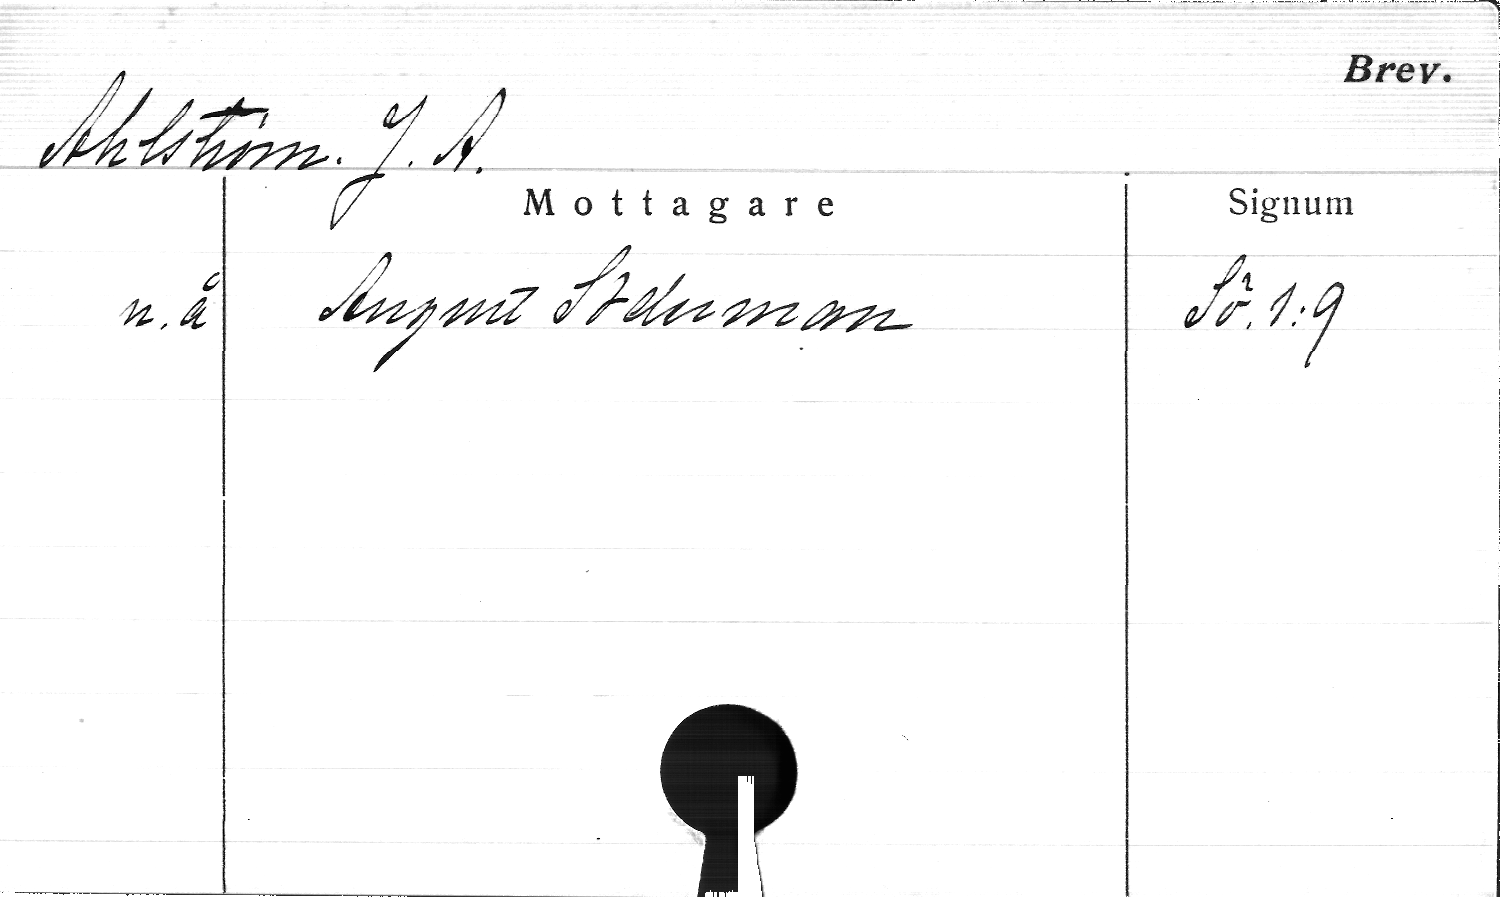 Brev.
Ahlström. J. A.
Mottagare Signum
n. å August Söderman Sö. 1:9